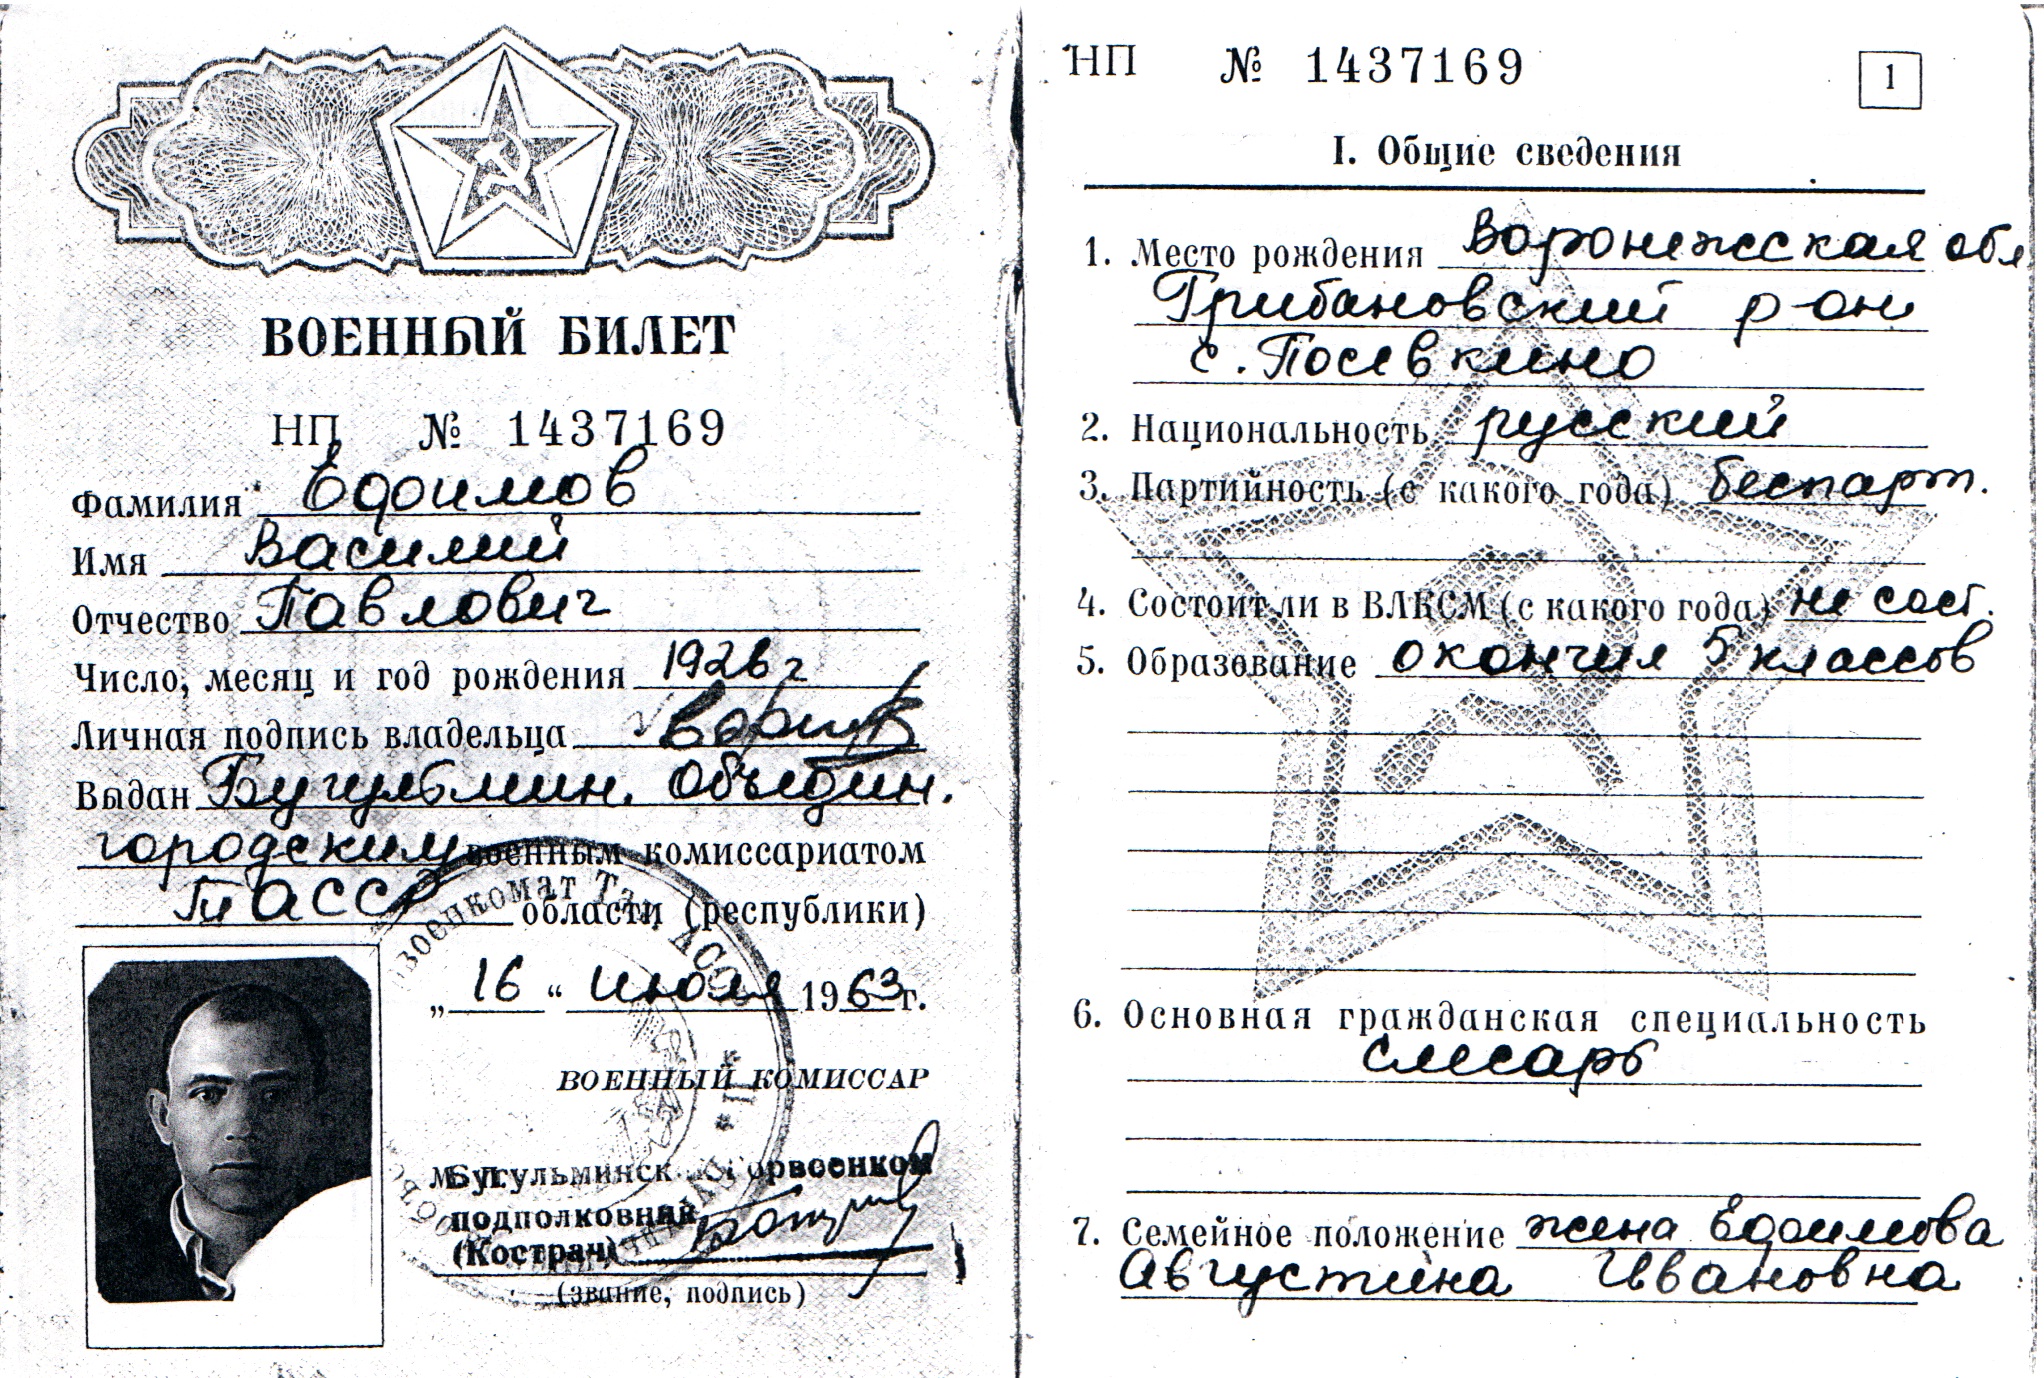 ВОЕННЫЙ БИЛЕТ
НП № 1437169
Фамилия Едоимов
Имя Василий
Отчество Павлович
Число, месяц и год рождения 1926 г
Личная подпись владельца
Выдан Бугульмин. Объедин.
городским военным комиссариатом
ТАССР области (республики)
„ 16 “ июля 1963 г.
ВОЕННЫЙ КОМИССАР
М. П.
Бугульминск горвоенком
подполковник
(Кострач)
(звание, подпись)
военкомат Тат АССР
НП № 1437169
1
I. Общие сведения
1. Место рождения Воронежская обл
Грибановский р-он
с. Посевкино
2. Национальность русский
3. Партийность (с какого года) беспарт.
4. Состоит ли в ВЛКСМ (с какого года) не сост.
5. Образование окончил 5 классов
6. Основная гражданская специальность
слесарь
7. Семейное положение жена Едоимова
Августина Ивановна